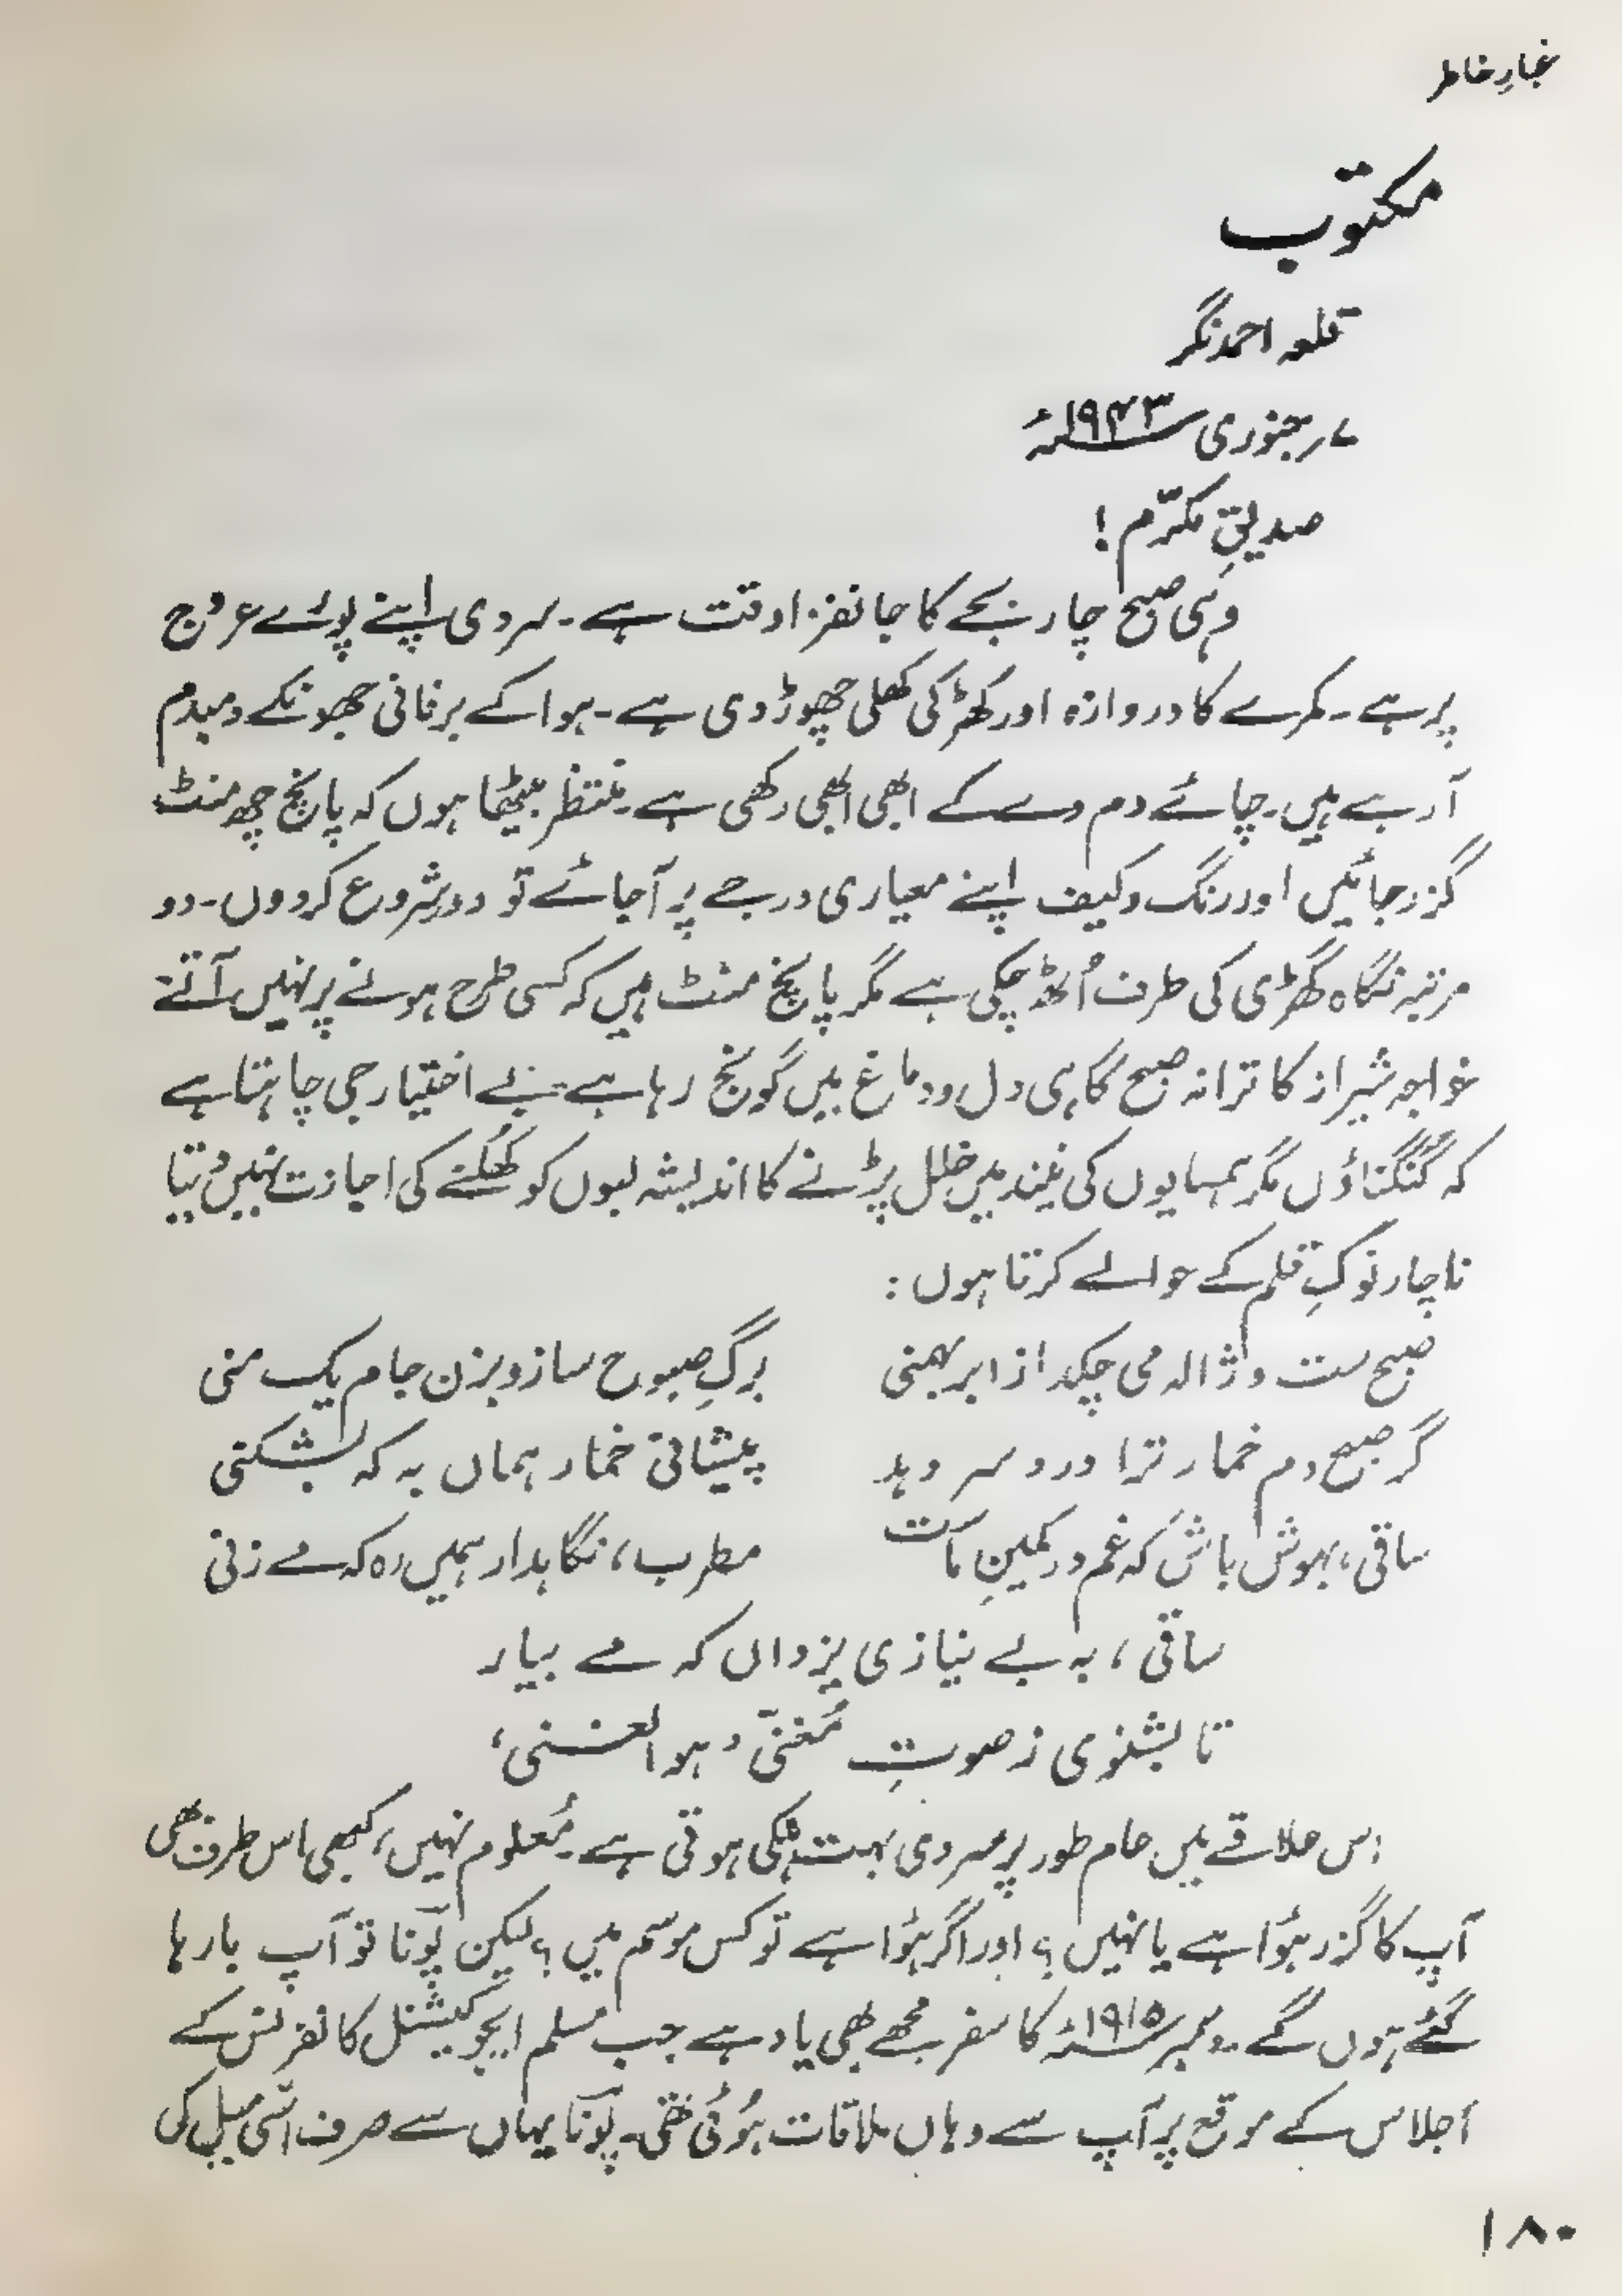 غبارِ خاطر
مکتوب
قلعہ احمد نگر
۷؍ جنوری ۱۹۴۳ء
صدیقِ مکرّم!
وہی صبح چار بجے کا جانفزا وقت ہے۔ سردی اپنے پورے عروج
پر ہے۔ کمرے کا دروازہ اور کھڑکی کھلی چھوڑ دی ہے۔ ہوا کے برفانی جھونکے دمبدم
آ رہے ہیں۔ چائے دم دے کے ابھی ابھی رکھی ہے۔ منتظر بیٹھا ہوں کہ پانچ چھ منٹ
گزر جائیں اور رنگ و کیف اپنے معیاری درجے پر آ جائے تو دور شروع کروں۔ دو
مرتبہ نگاہ گھڑی کی طرف اُٹھ چکی ہے مگر پانچ منٹ ہیں کہ کسی طرح ہونے پر نہیں آتے۔
خواجہ شیراز کا ترانہ صبح گاہی دل و دماغ میں گونج رہا ہے۔ بے اختیار جی چاہتا ہے
کہ گنگناؤں مگر ہمسایوں کی نیند میں خلل پڑنے کا اندیشہ لبوں کو کھُلنے کی اجازت نہیں دیتا
ناچار نوکِ قلم کے حوالے کرتا ہوں:
صبح ست و ژالہ می چکد از ابر بہمنی برگِ صبوح ساز و بزن جام یک منی
گر صبح دم خمار ترا درد سر دہد پیشانی خمار ہماں بہ کہ بشکنی
ساقی، بہوش باش کہ غم در کمینِ ماست مطرب، نگاہدار ہمیں رہ کہ مے زنی
ساقی، بہ بے نیازی یزداں کہ مے بیار
تا بشنوی ز صوتِ مُغنیّ ’ہوالغنی‘
اس علاقے میں عام طور پر سردی بہت ہلکی ہوتی ہے۔ مُعلوم نہیں، کبھی اس طرف بھی
آپ کا گزر ہُوا ہے یا نہیں؟ اور اگر ہُوا ہے تو کس موسم میں؟ لیکن پونا تو آپ بارہا
گئے ہوں گے۔ دسمبر ۱۹۱۵ء کا سفر مجھے بھی یاد ہے جب مسلم ایجوکیشنل کانفرنس کے
اجلاس کے موقع پر آپ سے وہاں ملاقات ہُوئی تھی۔ پونا یہاں سے صرف اسّی میل کی
۱۸۰